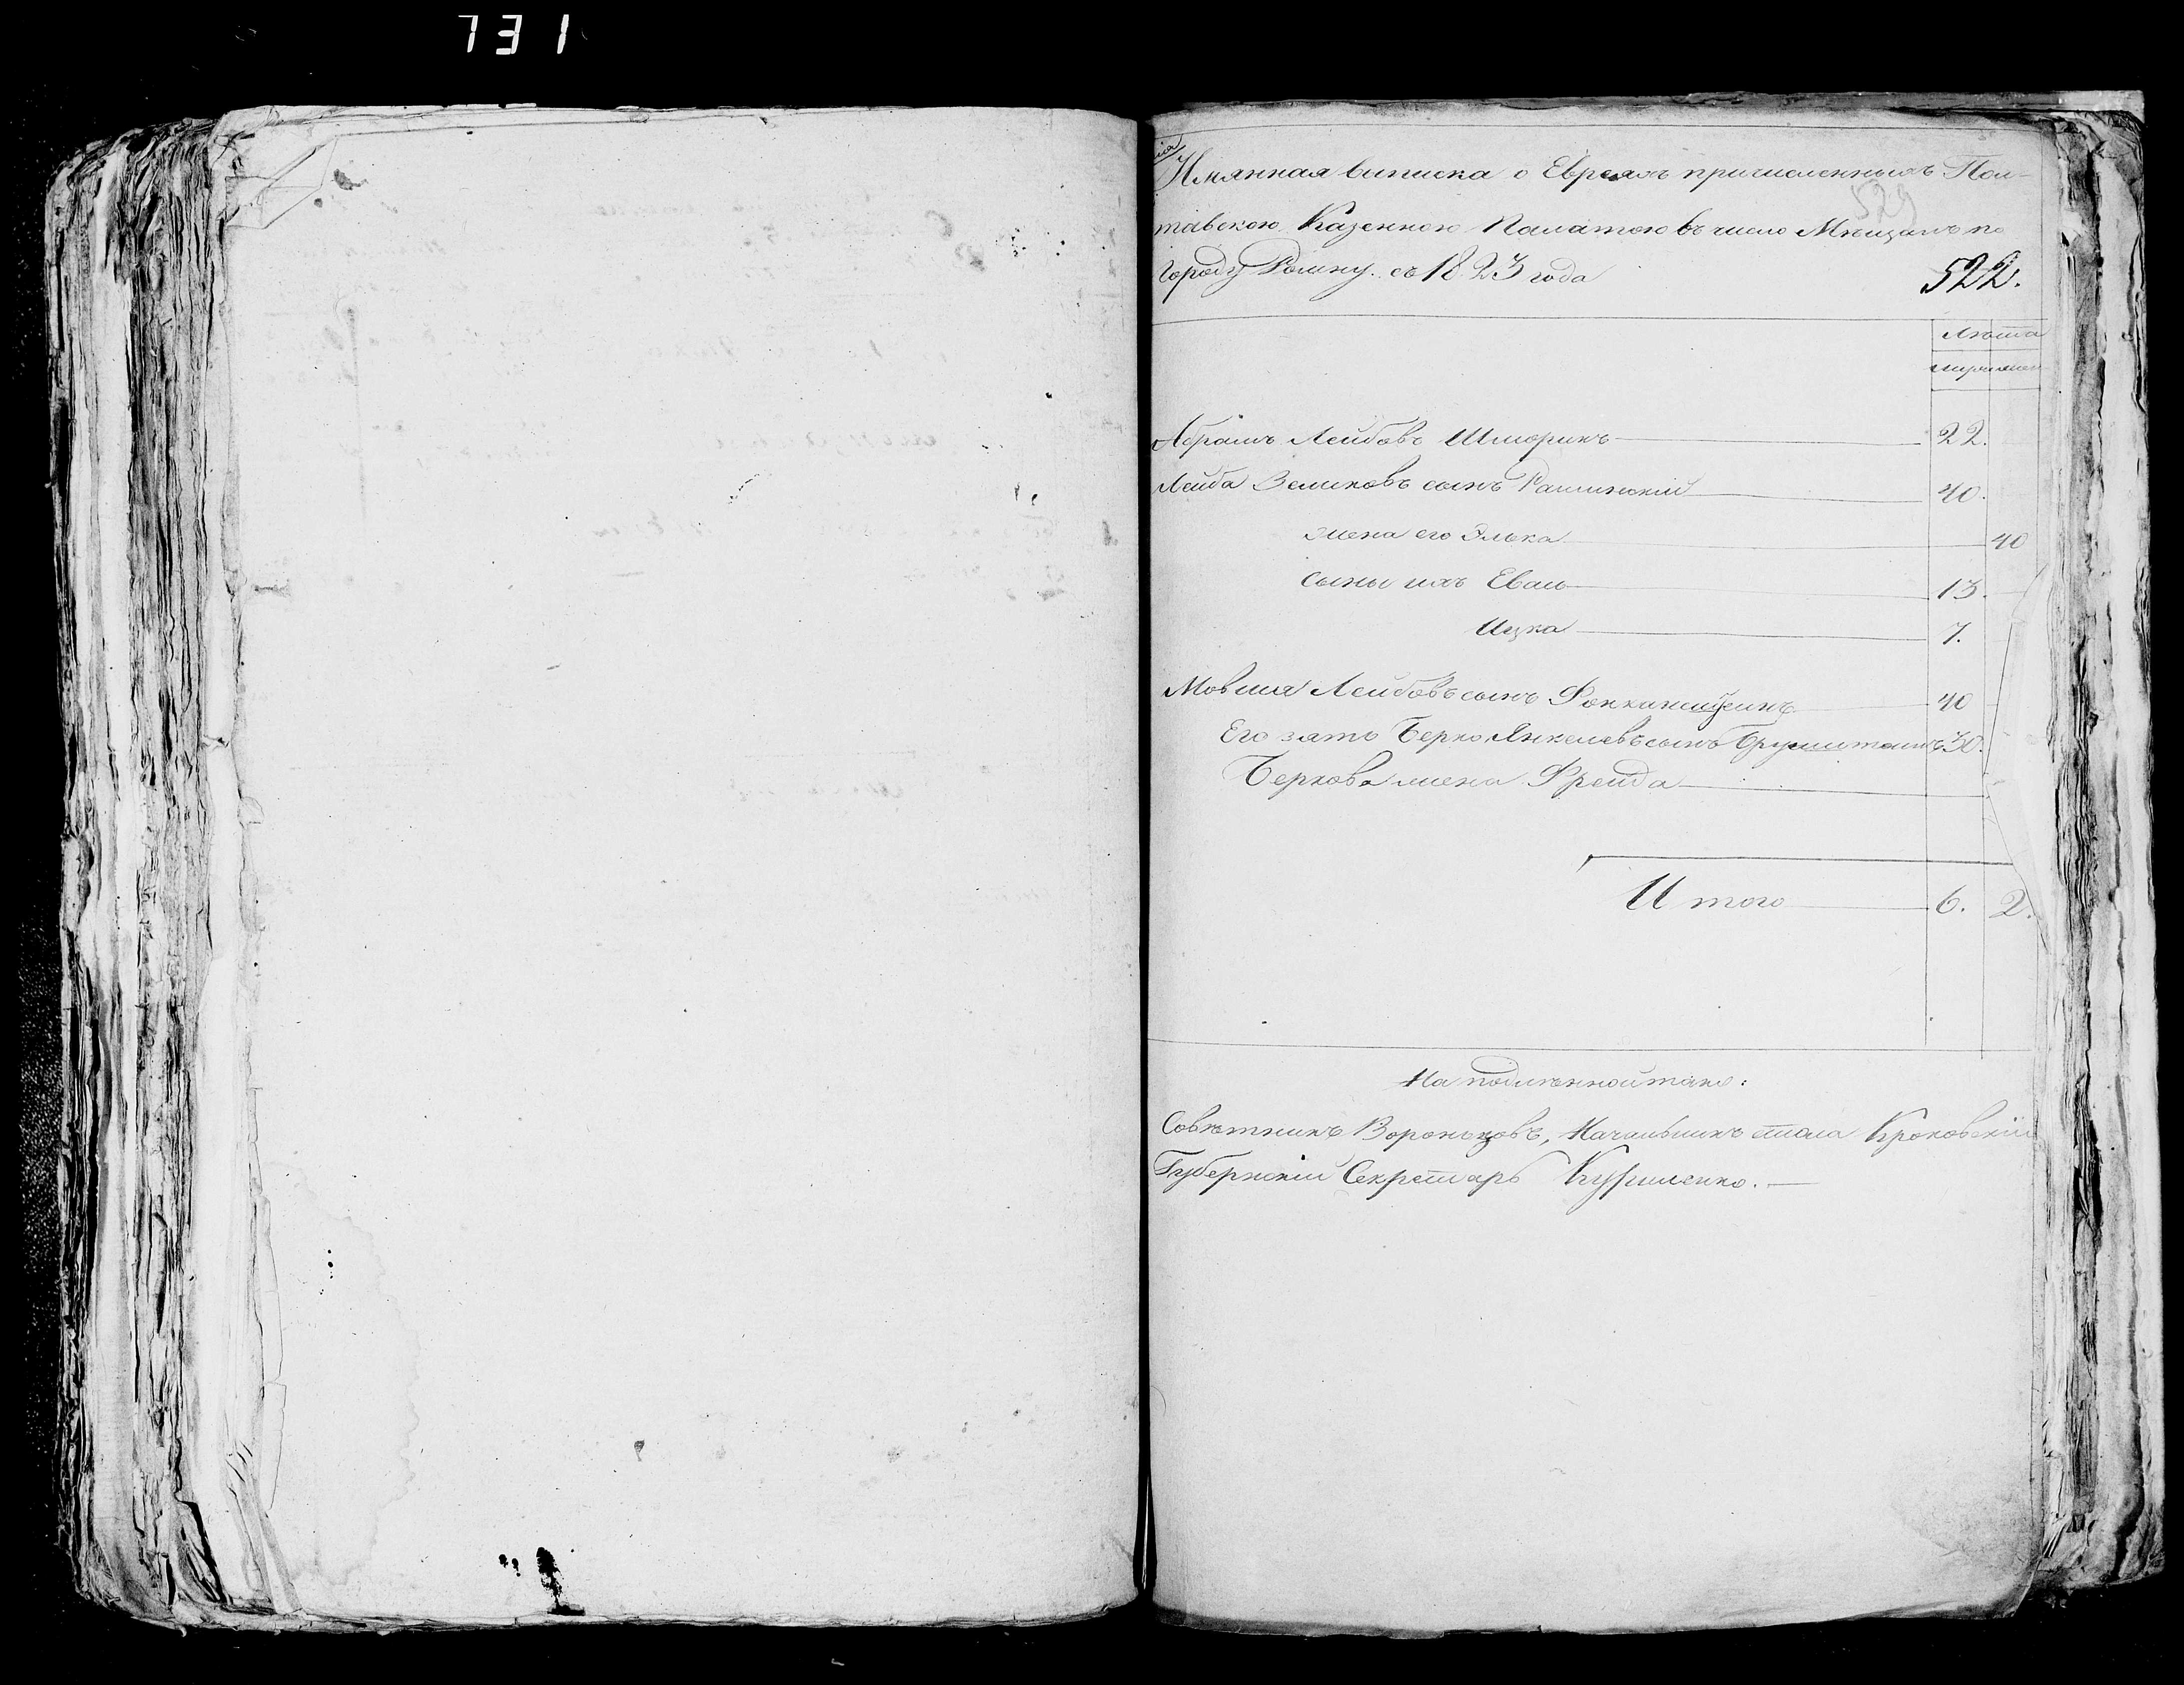 731
Имянная выписка о Евреяхъ причисленныхъ Пол-
тавскою Казенною Палатою въ число Мѣщанъ по
городу Ромну съ 1823 года
529
522.
Лѣта
муж жен
Абрамъ Лейбовъ 22.
Лейба сынъ 40.
жена его Элька 40
сыны ихъ 13.
Ицка 7.
Мовша Лейбовъ сынъ 40
Его зять Берко Янкелевъ сынъ 30.
Беркова жена Фрейда
Итого 6. 2.
На подлѣнной тако:
Совѣтникъ Воронцовъ, Начальникъ стола Кроковскій
Губернскій Секретарь